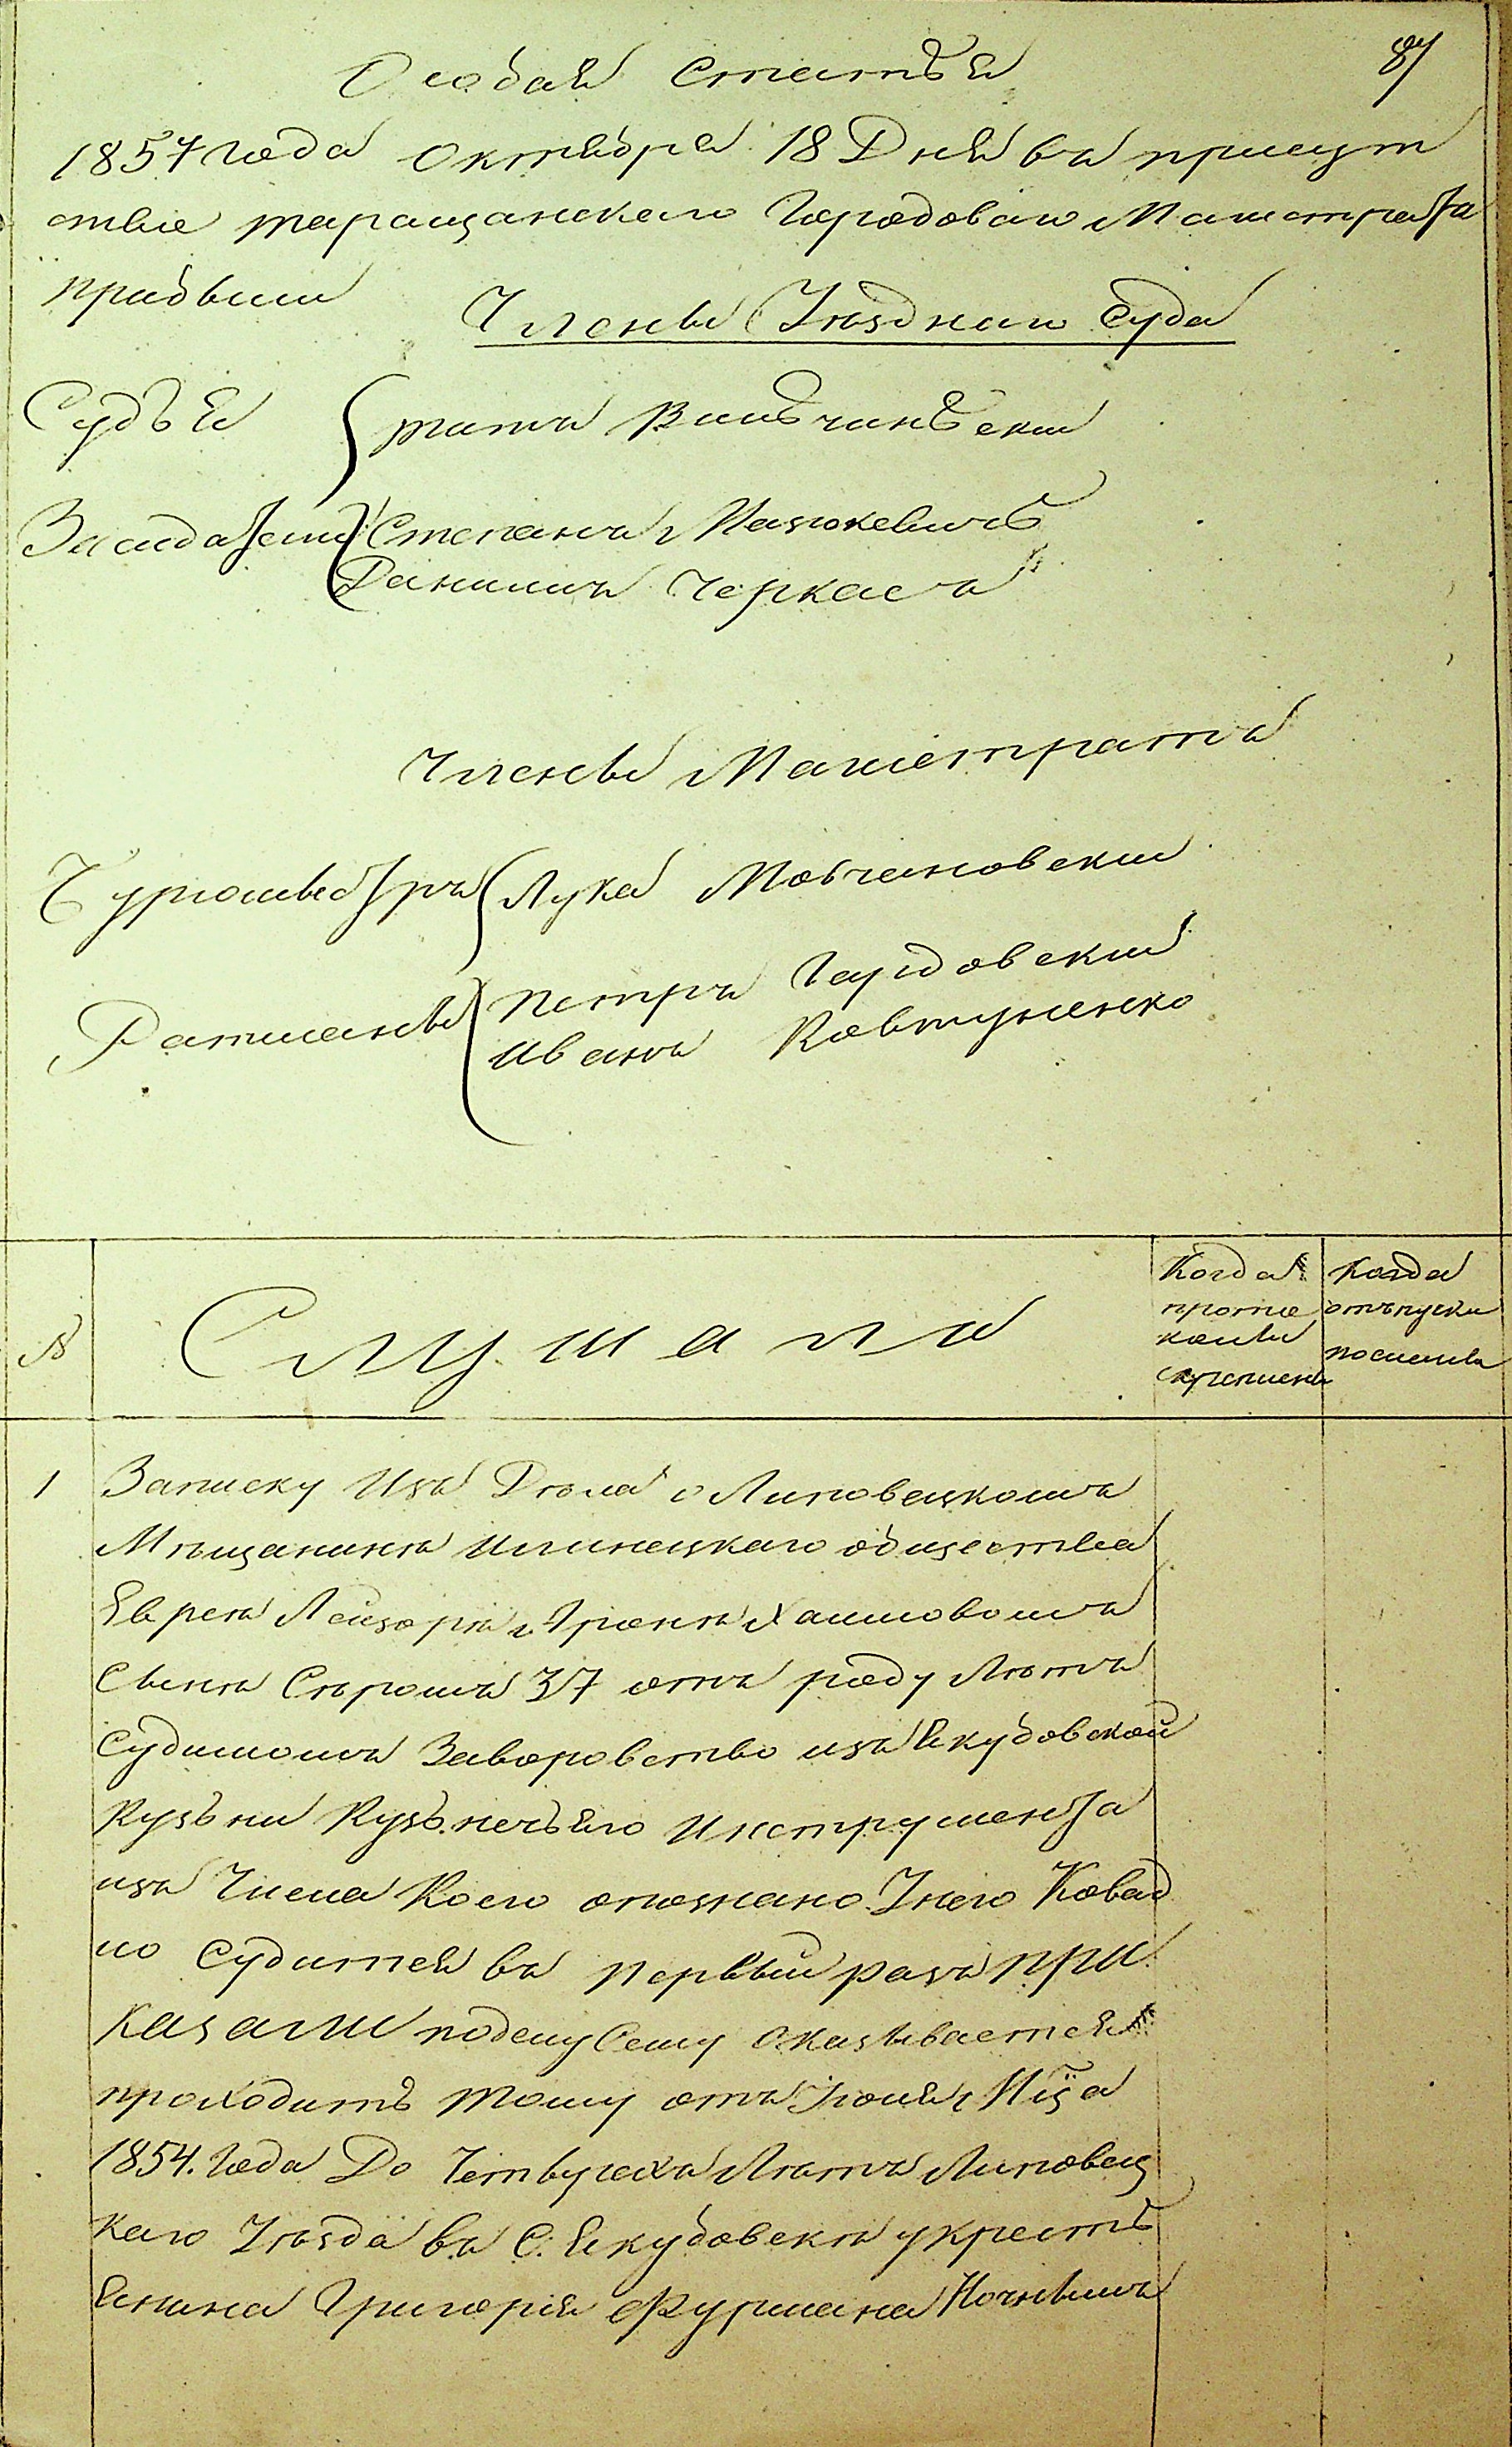 Особая статья
87
1857 года октября 18 Дня въ присут
ствіе таращанскаго Городоваго Магистрата
прибыли
Члены Уѣзднаго Суда
Судья
титъ Вильчинскій
Засѣдатели Степанъ Мацкевичъ
Данилъ Черкасъ
Члены Магистрата
Бургомистръ Лука Мовчановскій
Ратманы Петръ Гайдовскій
Иванъ Ковтуненко
№
Слушали
Когда протоколы скреплены
Когда отъпуски посланы
1 Записку Изъ Дѣла о Липовецкомъ
Мѣщанинѣ Илинецкаго общества
Евреѣ Лейзорѣ Аронѣ Хаимовомъ
Сынѣ Сыромъ 37 отъ роду Лѣтъ
Судимомъ Заворовство изъ Якубовской
Кузьни Кузьнечьяго Инструмента
изъ Числа Коего опознано Унего Ковад
ло Судится въ первый разъ при
казали поделу Сему Оказывается
проходитъ тому отъ Іюля Мца
1854. Года До Четвурехъ Лѣтъ Липовец
каго Уѣзда въ С. Якубовскѣ укресть
янина Григорія Фурмана Ночнымъ